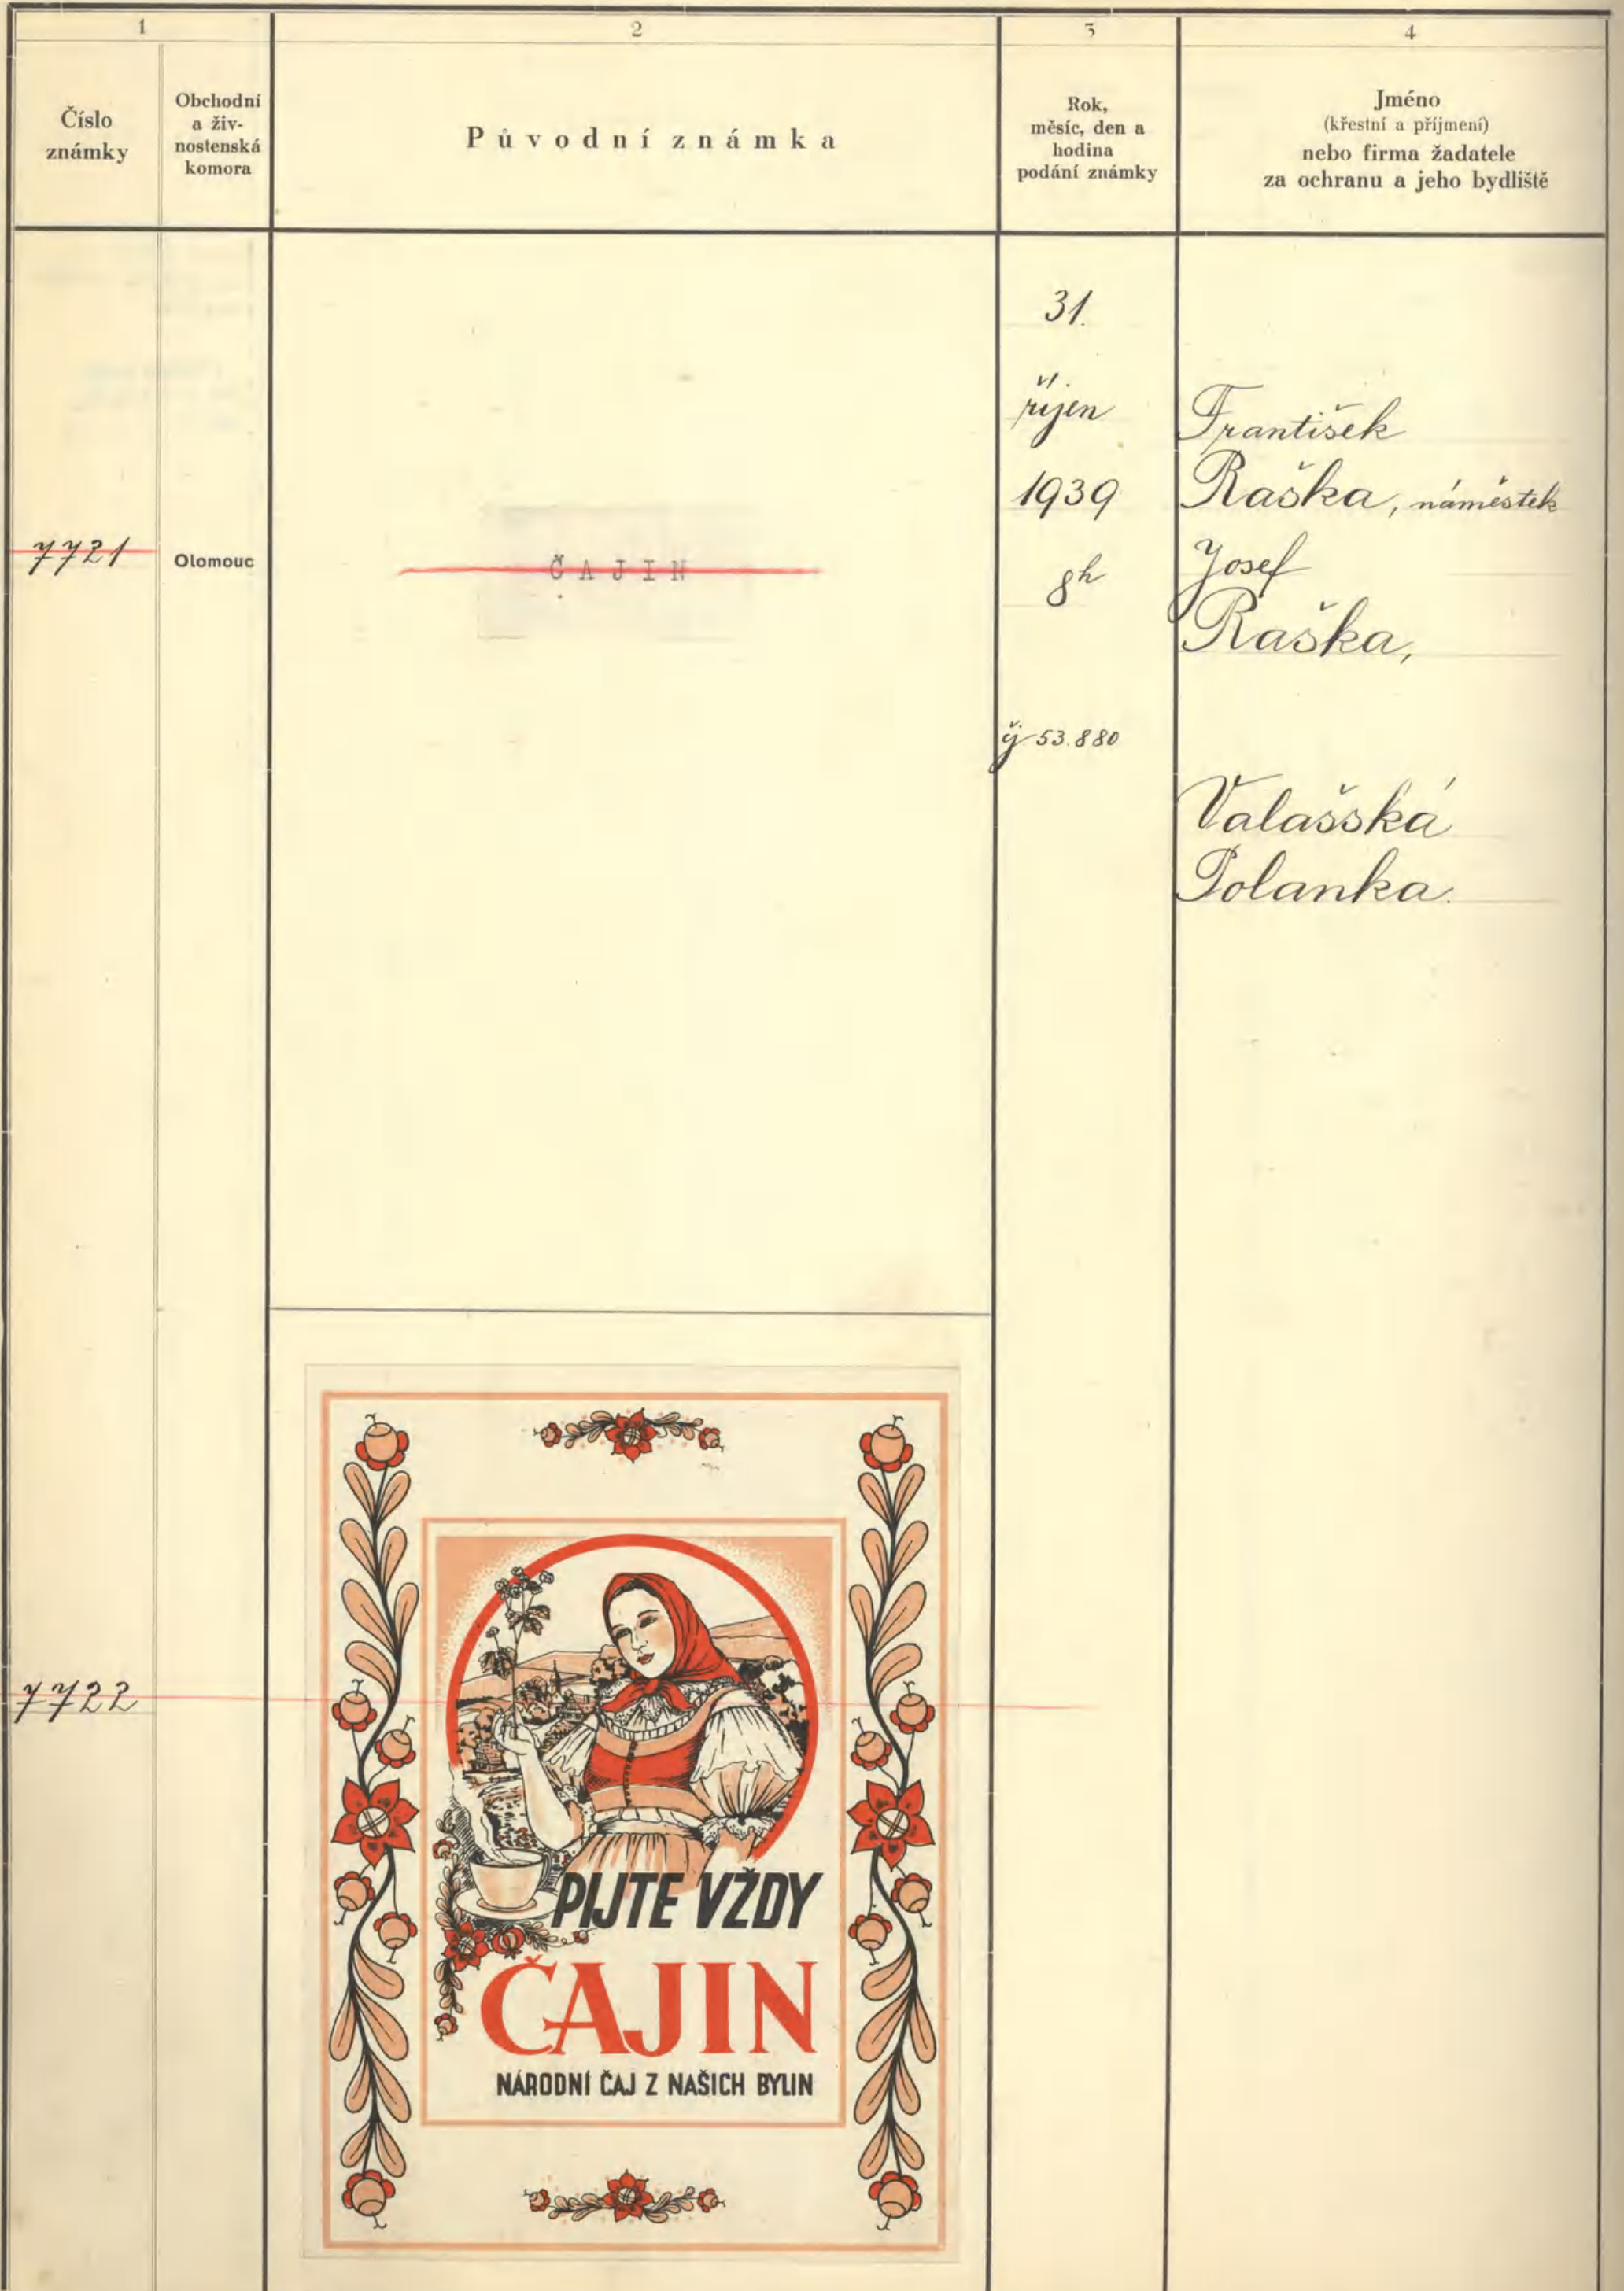 1
2
3
4
Číslo
známky
Obchodní
a živ-
nostenská
komora
Původní známka
Rok,
měsíc, den a
hodina
podání známky
Jméno
(křestní a příjmení)
nebo firma žadatele
za ochranu a jeho bydliště
7721
Olomouc
ČAJIN
31.
říjen
1939
8h
čj. 53.880
František
Raška, náměstek
Josef
Raška,
Valašská
Polanka.
7722
PIJTE VŽDY
ČAJIN
NÁRODNÍ ČAJ Z NAŠICH BYLIN